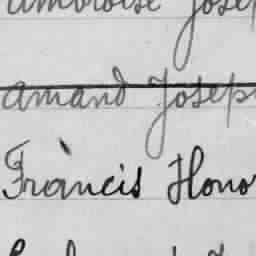 ambroise Josep
amand Joseph
Francis Hono